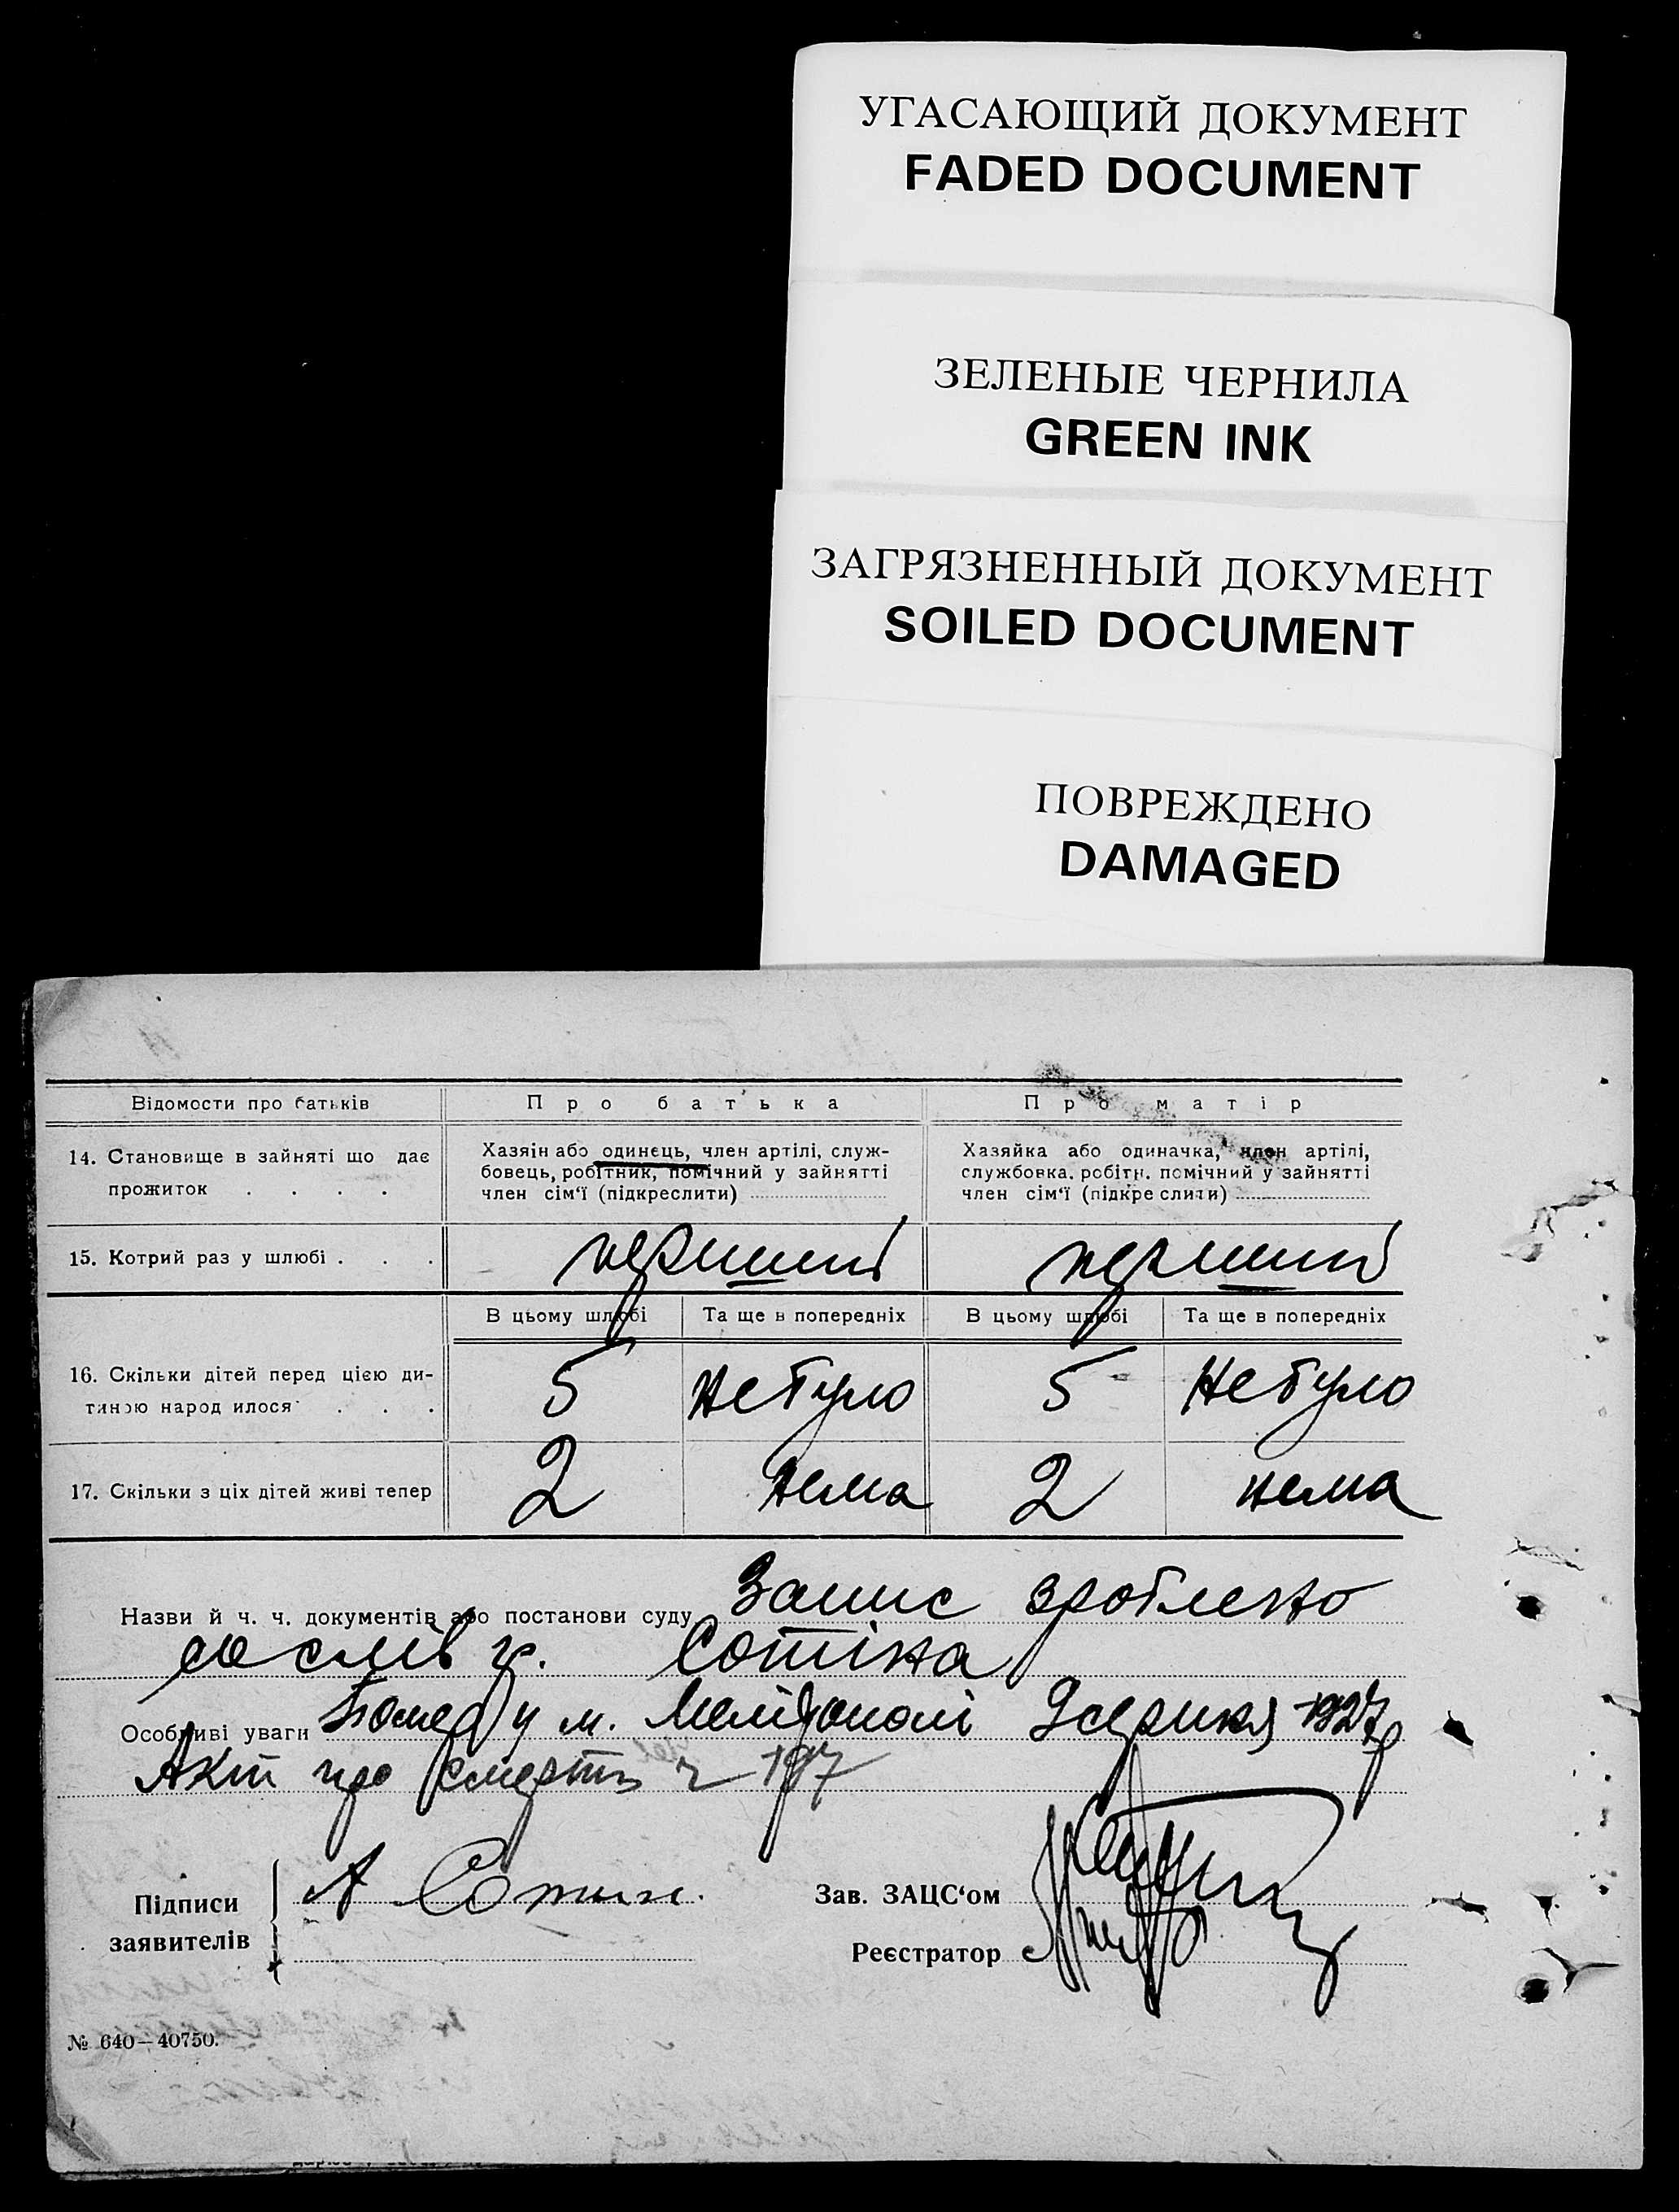 УГАСАЮЩИЙ ДОКУМЕНТ
FADED DOCUMENT
ЗЕЛЕНЫЕ ЧЕРНИЛА
GREEN INK
ЗАГРЯЗНЕННЫЙ ДОКУМЕНТ
SOILED DOCUMENT
ПОВРЕЖДЕНО
DAMAGED
Відомости про батьків
Про батька
Про матір
14. Становище в зайняті що дає
прожиток . . . .
Хазяїн або одинець, член артілі, служ-
бовець, робітник, помічний у зайнятті
член сім'ї (підкреслити)
Хазяйка або одиначка, член артілі,
службовка, робітн. помічний у зайнятті
член сім'ї (підкреслити)
15. Котрий раз у шлюбі . . .
перший
перший
В цьому шлюбі
Та ще в попередніх
В цьому шлюбі
Та ще в попередніх
16. Скільки дітей перед цією ди-
тиною народилося . . .
5
не було
5
не було
17. Скільки з ціх дітей живі тепер
2
нема
2
нема
Назви й ч. ч. документів або постанови суду Запис зроблено
со слів гр. Сотіна
Особливі уваги Помер у м. Мелітополі 1927р
Акт про смерть ч 197
Підписи
заявителів
А Сотин.
Зав. ЗАЦС'ом
Реєстратор
№ 640—40750.